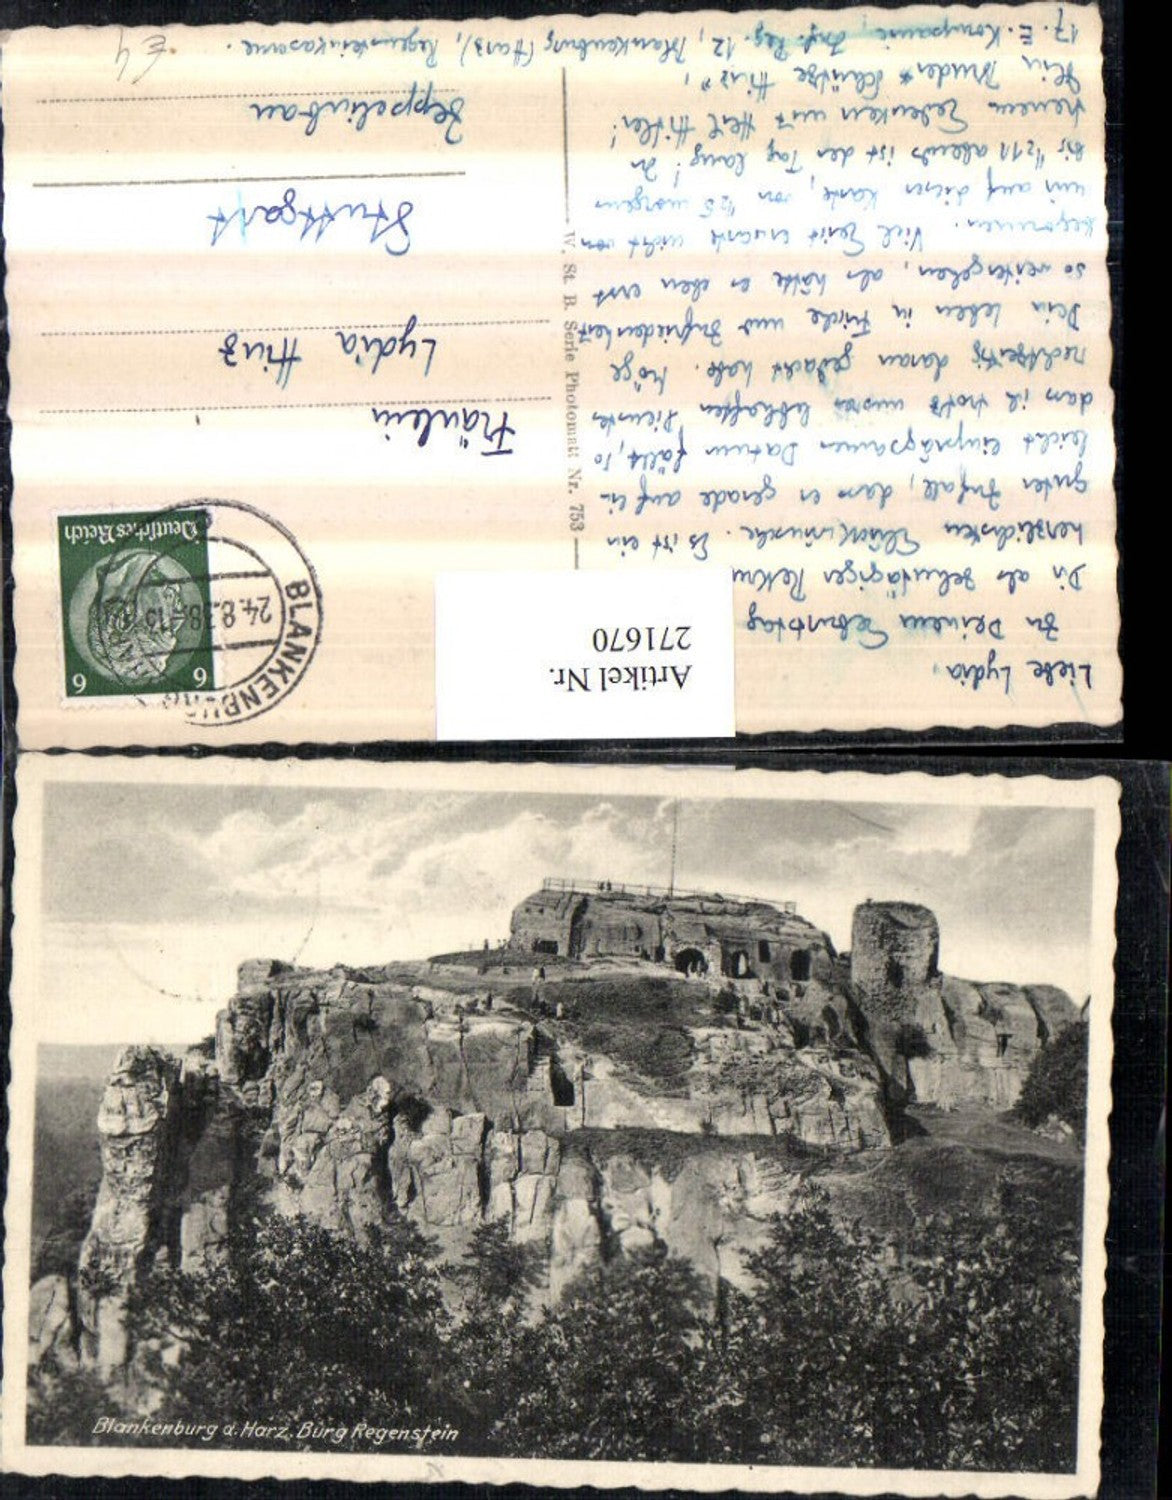 Liebe Lydia,
zu Deinem Geburtstag
Dir als zehntägiger Rekrut
herzlichsten Glückwünsche. Es ist ein
guter Zufall, dass er gerade auf ein
leicht einprägsames Datum fällt, so
dass ich trotz unseres lebhaften Dienstes
rechtzeitig daran gedacht habe. Möge
Dein Leben in Friede und Zufriedenheit
so weitergehen, als hätte es eben erst
begonnen. Viel Zeit erwarte nicht von
mir auf dieser Karte, von ½5 morgens
bis ½11 abends ist der Tag lang! In
treuem Gedenken und Heil Hitler!
Dein Bruder "Schütze Hinz",
17. E. Kompanie Inf. Reg. 12, Blankenburg (Harz), Regensteinkaserne.
Artikel Nr.
271670
W. St. B. Serie Photomatt Nr. 753
Deutsches Reich
6 6
BLANKENBURG
24.8.38
Fräulein
Lydia Hinz
Stuttgart
Zeppelinbau
E 4
Blankenburg a. Harz. Burg Regenstein